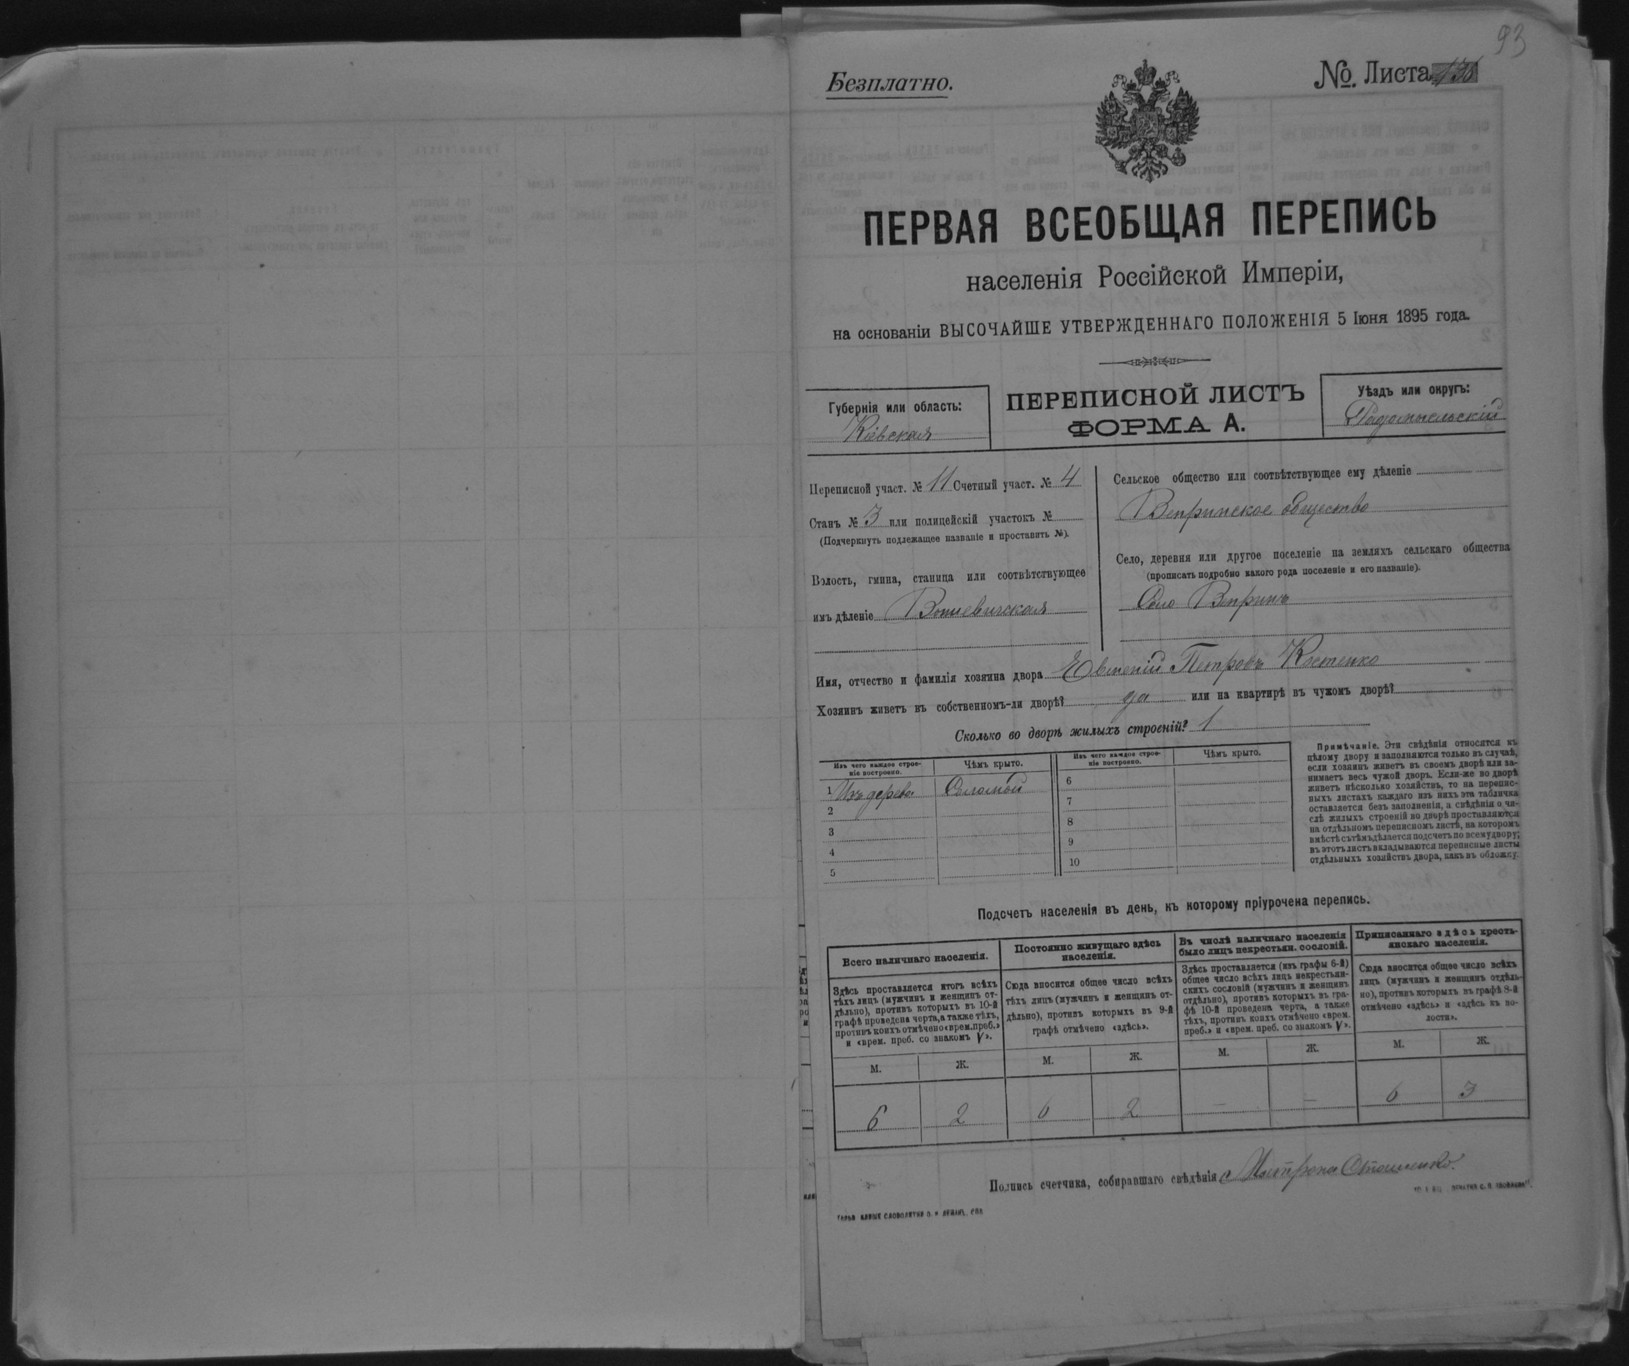 93
Безплатно.
№. Листа
ПЕРВАЯ ВСЕОБЩАЯ ПЕРЕПИСЬ
населенія Россійской Имперіи,
на основаніи ВЫСОЧАЙШЕ УТВЕРЖДЕННАГО ПОЛОЖЕНІЯ 5 Іюня 1895 года.
Губернія или область:
Кіевская
ПЕРЕПИСНОЙ ЛИСТЪ
ФОРМА А.
Уѣздъ или округъ:
Радомысльскій
Переписной участ. № 11 Счетный участ. № 4
Станъ № 3 или полицейскій участокъ №
(Подчеркнуть подлежащее названіе и проставить №).
Волость, гмина, станица или соотвѣтствующее
имъ дѣленіе
Сельское общество или соотвѣтствующее ему дѣленіе
Вепринское общество
Село, деревня или другое поселеніе на земляхъ сельскаго общества
(прописать подробно какого рода поселеніе и его названіе).
Село Вепринъ
Имя, отчество и фамилія хозяина двора Евгеній Петровъ Костенко
Хозяинъ живетъ въ собственномъ-ли дворѣ? да или на квартирѣ въ чужомъ дворѣ?
Сколько во дворѣ жилыхъ строеній? 1
Изъ чего каждое строе-
ніе построено.
Чѣмъ крыто.
1 Изъ дерева Соломой
2
3
4
5
Изъ чего каждое строе-
ніе построено.
Чѣмъ крыто.
6
7
8
9
10
Примѣчаніе. Эти свѣдѣнія относятся къ
цѣлому двору и заполняются только въ случаѣ,
если хозяинъ живетъ въ своемъ дворѣ или за-
нимаетъ весь чужой дворъ. Если-же во дворѣ
живетъ нѣсколько хозяйствъ, то на перепис-
ныхъ листахъ каждаго изъ нихъ эта табличка
оставляется безъ заполненія, а свѣдѣнія о чи-
слѣ жилыхъ строеній во дворѣ проставляются
на отдѣльномъ переписномъ листѣ, на которомъ
вмѣстѣ съ тѣмъ дѣлается подсчетъ по всему двору;
въ этотъ листъ вкладываются переписные листы
отдѣльныхъ хозяйствъ двора, какъ въ обложку.
Подсчетъ населенія въ день, къ которому пріурочена перепись.
Всего наличнаго населенія.
Здѣсь проставляется итогъ всѣхъ
тѣхъ лицъ (мужчинъ и женщинъ от-
дѣльно), противъ которыхъ въ 10-й
графѣ проведена черта, а также тѣхъ,
противъ коихъ отмѣчено «врем. преб.»
и «врем. преб. со знакомъ V».
М. Ж.
6 2
Постоянно живущаго здѣсь
населенія.
Сюда вносится общее число всѣхъ
тѣхъ лицъ (мужчинъ и женщинъ от-
дѣльно), противъ которыхъ въ 9-й
графѣ отмѣчено «здѣсь».
М. Ж.
6 2
Въ числѣ наличнаго населенія
было лицъ некрестьян. сословій.
Здѣсь проставляется (изъ графы 6-й)
общее число всѣхъ лицъ некрестьян-
скихъ сословій (мужчинъ и женщинъ
отдѣльно), противъ которыхъ въ гра-
фѣ 10-й проведена черта, а также
тѣхъ, противъ коихъ отмѣчено «врем.
преб.» и «врем. преб. со знакомъ V».
М. Ж.
– –
Приписаннаго здѣсь кресть-
янскаго населенія.
Сюда вносится общее число всѣхъ
лицъ (мужчинъ и женщинъ отдѣль-
но), противъ которыхъ въ графѣ 8-й
отмѣчено «здѣсь» и «здѣсь въ во-
лости».
М. Ж.
6 3
Подпись счетчика, собиравшаго свѣдѣнія